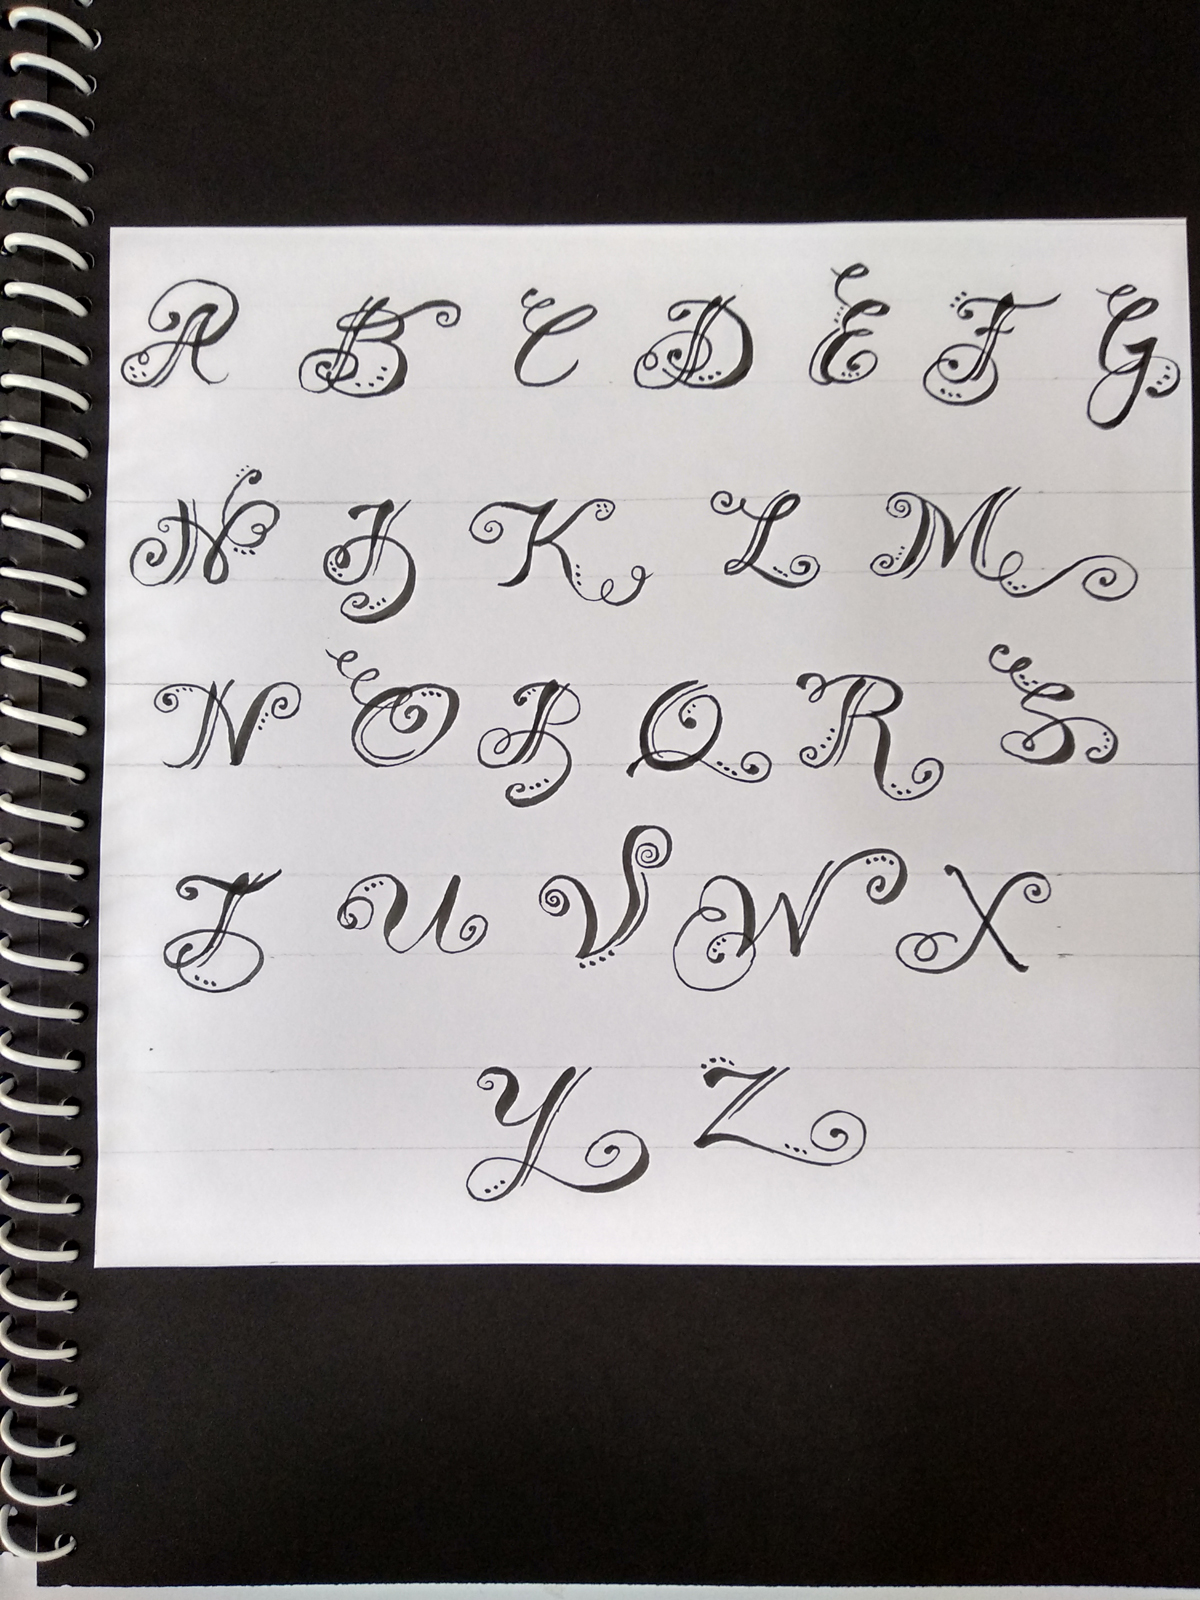 A B C D E F G
H J K L M
N O P Q R S
T U V W X
Y Z